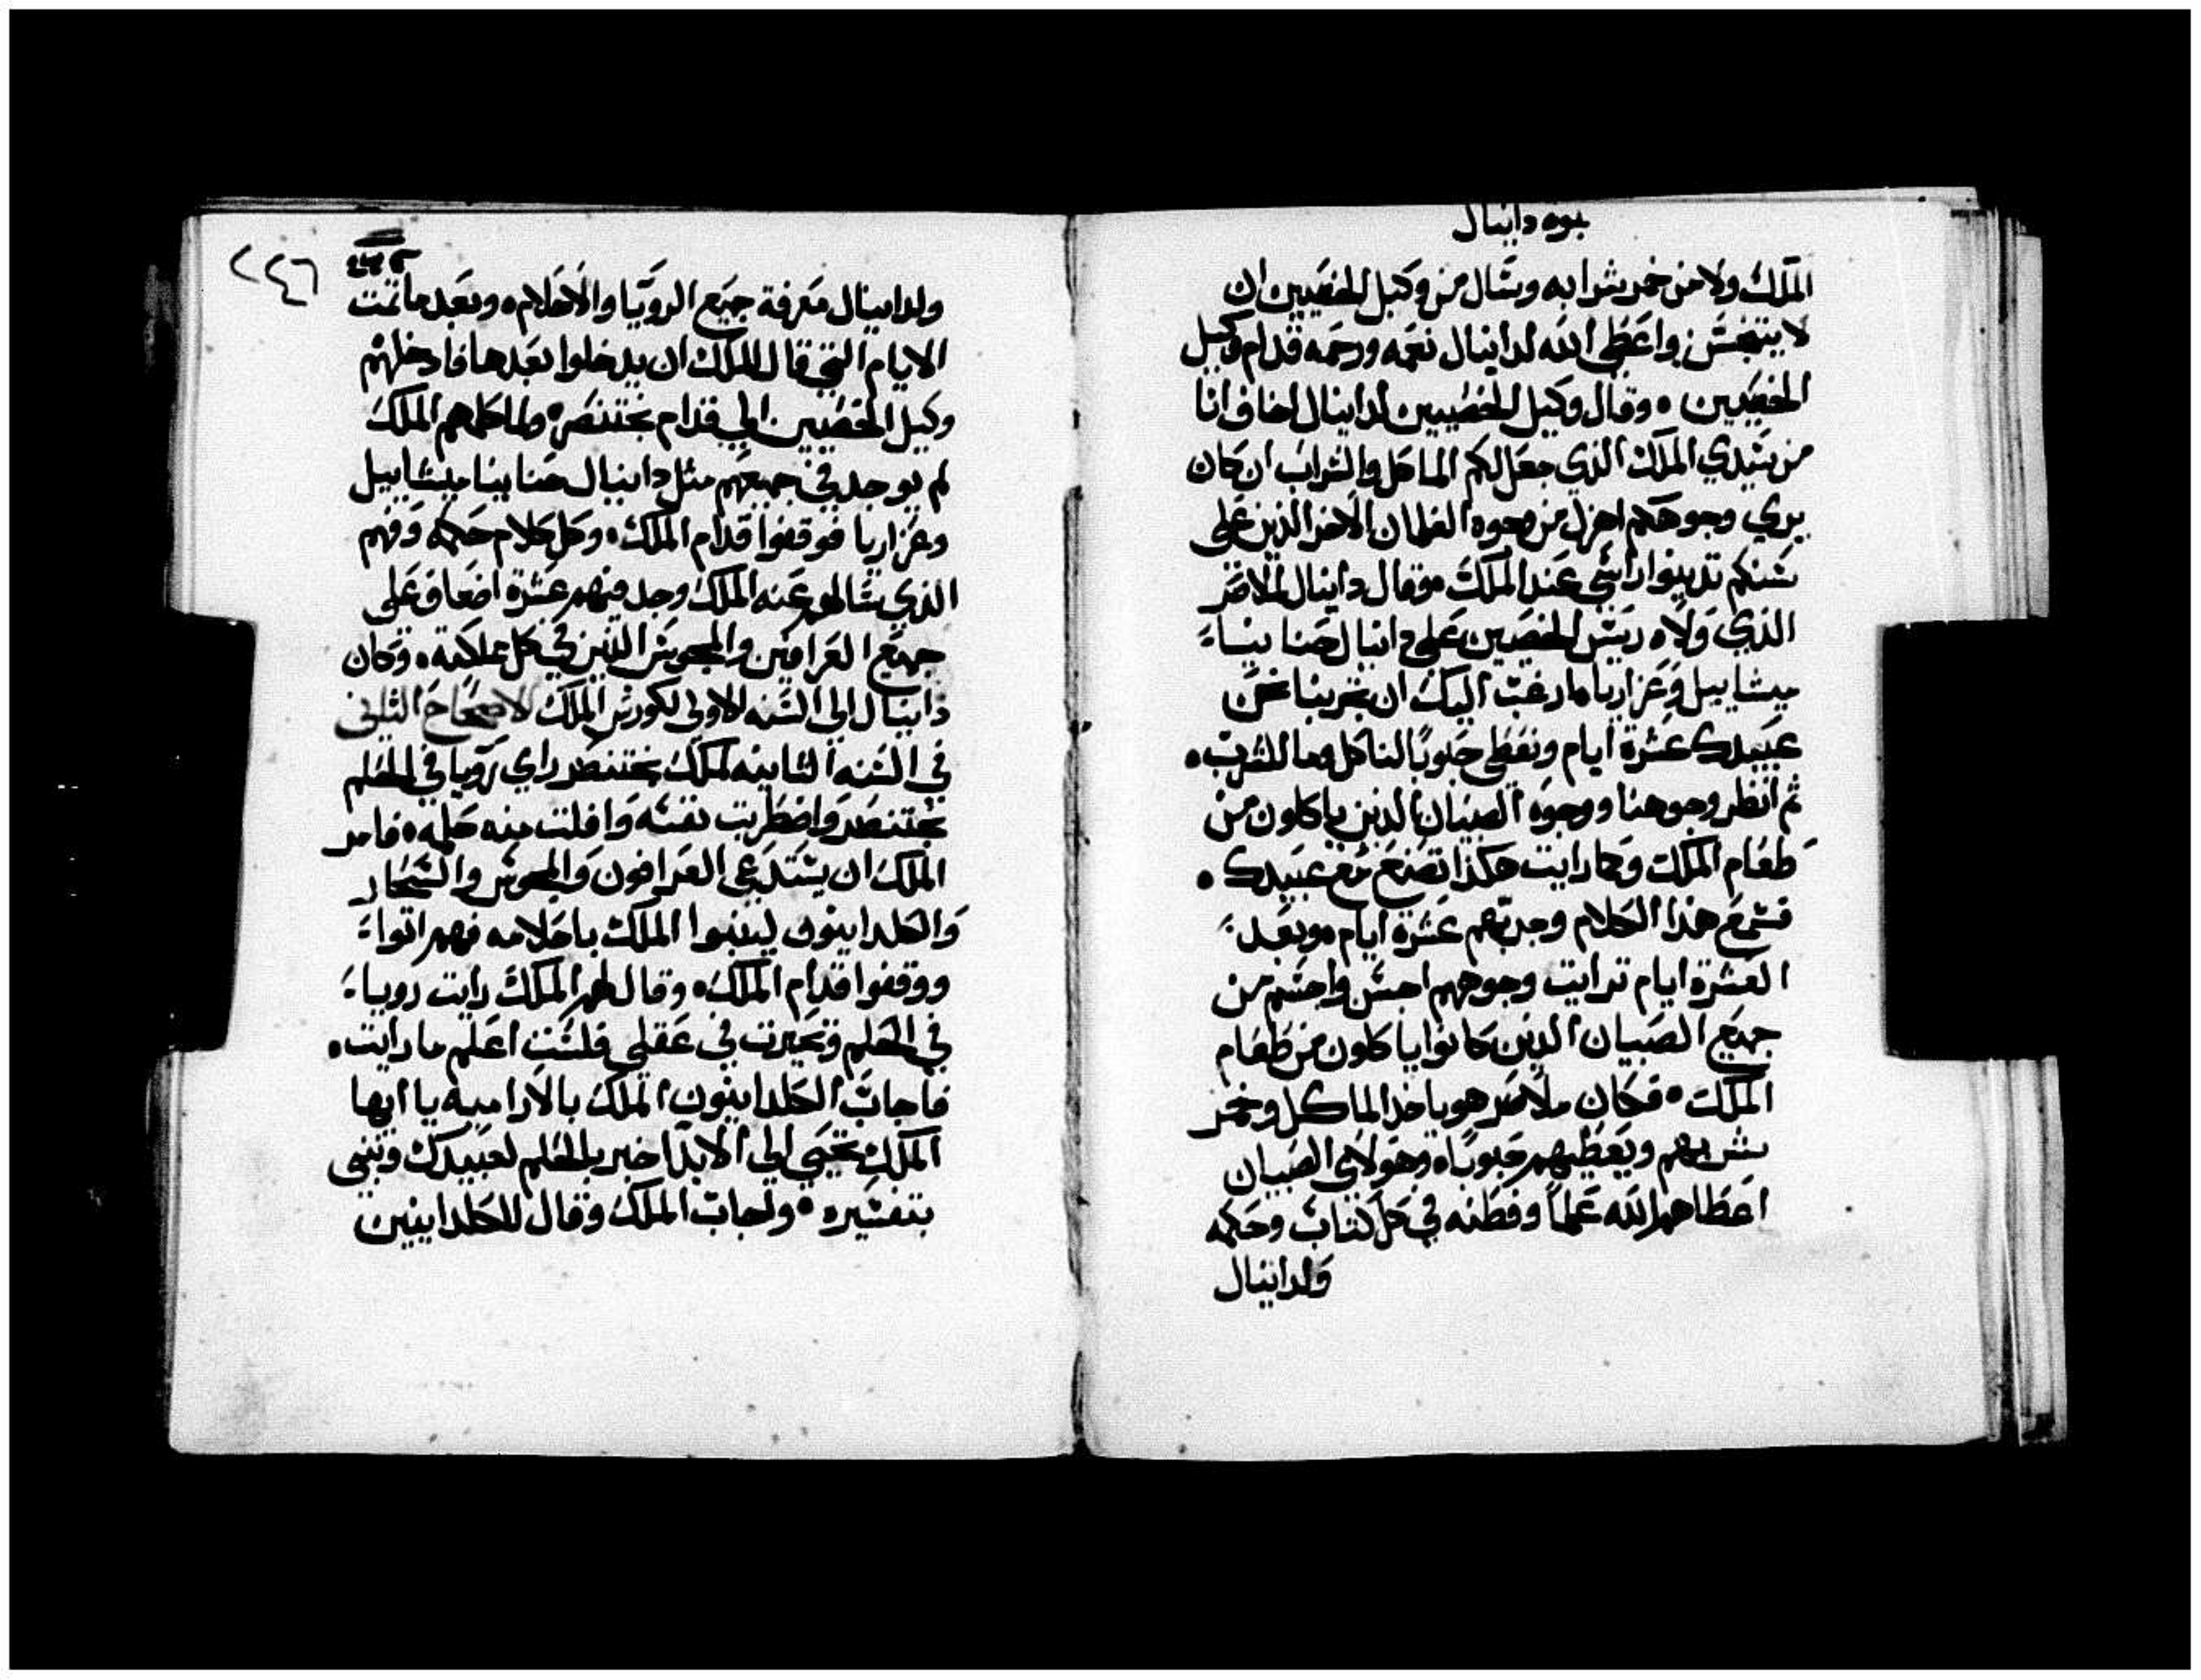 نبوه دانيال
الملك ولا من خمر شرابه وسال من وكيل الخصيين ان
لا يتنجس واعطي الله لدانيال نعمه ورحمه قدام وكيل
الخصيين وقال وكيل الخصيين لدانيال اخاف انا
من سيدي الملك الذي جعل لكم الماكل والشراب ان كان
يري وجوهكم اهزل من وجوه الغلمان الاخر الذين علي
سنكم تدينوا راسي عند الملك وقال دانيال لملاصر
الذي ولاه ريس الخصيين علي دانيال حنانيا
ميشاييل وعزاريا ارغب اليك ان تجربنا نحن
عبيدك عشرة ايام ونعطي حبوبا لناكل وما للشرب
ثم انظر وجوهنا ووجوه الصبيان الذين ياكلون من
طعام الملك وكما رايت هكذا تصنع مع عبيدك
فسمع هذا الكلام وجربهم عشرة ايام وبعد
العشرة ايام ترايت وجوههم احسن واجسم من
جميع الصبيان الذين كانوا ياكلون من طعام
الملك فكان ملاصر هو ياخذ الماكل وخمر
شربهم ويعطيهم حبوبا وهولاي الصبيان
اعطاهم الله علما وفطنه في كل كتاب وحكمه
ولدانيال
٢٤٦
ولدانيال معرفة جميع الرويا والاحلام وبعد ما تمت
الايام التي قال الملك ان يدخلوا بعدها فادخلهم
وكيل الخصيين الي قدام بختنصر ولما كلمهم الملك
لم يوجد في جميعهم مثل دانيال حنانيا ميشاييل
وعزاريا فوقفوا قدام الملك وكل كلام حكمه وفهم
الذي سالهم عنه الملك وجد فيهم عشرة اضعاف علي
جميع العرافين والمجوس الذين في كل مملكته وكان
دانيال الي السنه الاولي لكورش الملك الاصحاح الثاني
في السنه الثانيه لملك بختنصر راي رويا في الحلم
بختنصر واضطربت نفسه وافلت منه حلمه فامر
الملك ان يستدعي العرافون والمجوس والسحار
والكلدانيون لينبوا الملك باحلامه فهم اتوا
ووقفوا قدام الملك وقال لهم الملك رايت رويا
في الحلم وتحيرت في عقلي فلست اعلم ما رايت
فاجاب الكلدانيون الملك بالاراميه يا ايها
الملك تحيي الي الابد اخبر بالحلم لعبيدك وننبي
بتفسيره واجاب الملك وقال للكلدانيين